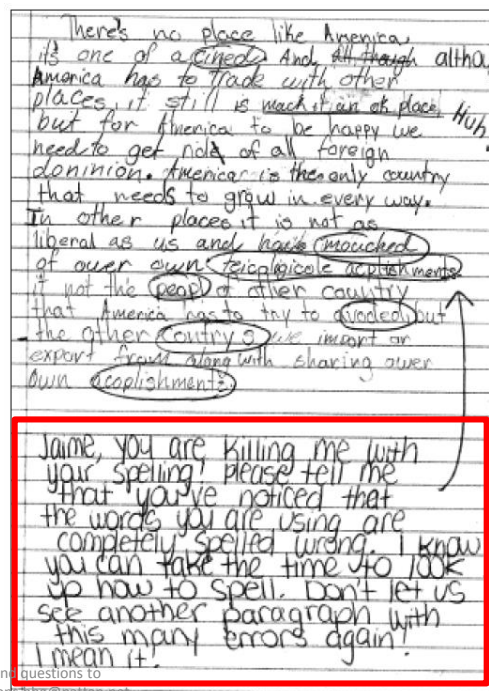 There's no place like America,
it's one of a cined. And, All though altho
America has to trade with other
places, it still is mack it an ok place, Huh.
but for America to be happy we
need to get rid of all foreign
doninion. America is the only country
that needs to grow in every way.
In other places it is not as
liberal as us and have mouched
of ouer own teicpligicole acplishments
it not the peapl of other country
that America has to try to avoded but
the other contry's we import or
export from along with sharing ouer
own acoplishments.
Jaime, you are killing me with
your spelling! please tell me
that you've noticed that
the words you are using are
completely spelled wrong. I know
you can take the time to look
up how to spell. Don't let us
see another paragraph with
this many errors again!
I mean it!
nd questions to